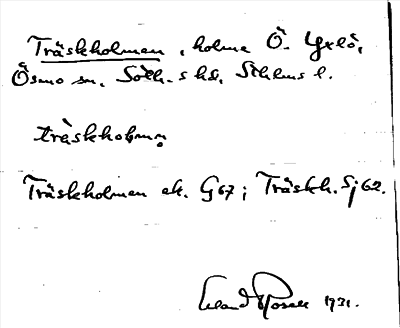 Träskholmen, holme Ö. Yxlö,
Ösmo sn. Soth-s hd, Sthlms l.
träskholmen
Träskholmen ek. G 67; Träskh. Sj 62.
Erland Rosell 1931.